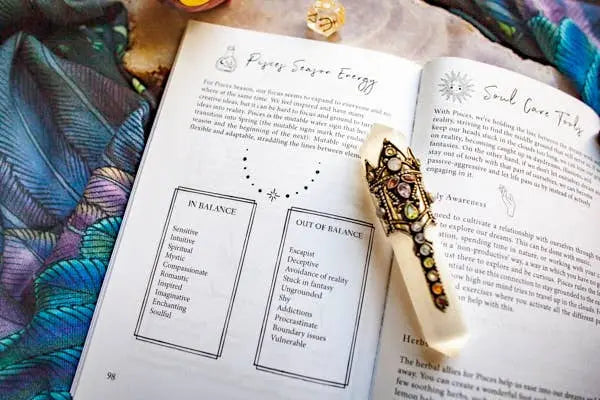 Pisces Season Energy
For Pisces Season, our focus seems to expand to everyone and no
where at the same time. We feel inspired and have many
creative ideas, but it can be hard to focus and ground to turn
ideas into reality. Pisces is the mutable water sign that
transition into Spring (the mutable signs mark the
season and the beginning of the next). Mutable signs
flexible and adaptable, straddling the lines between
IN BALANCE
Sensitive
Intuitive
Spiritual
Mystic
Compassionate
Romantic
Inspired
Imaginative
Enchanting
Soulful
OUT OF BALANCE
Escapist
Deceptive
Avoidance of reality
Stuck in fantasy
Ungrounded
Shy
Addictions
Procrastinate
Boundary issues
Vulnerable
98
Soul Care Tools
With Pisces, we're holding the line between the dream
reality, striving to find the middle ground that will
keep our heads stuck in the clouds for too long, we lose
on reality, becoming caught up in daydreams, illusions
fantasies. On the other hand, if we don't let ourselves dream
stay out of touch with that part of ourselves, we can become
passive-aggressive and let life pass us by instead of actively
engaging in it.
Awareness
need to cultivate a relationship with ourselves through
to explore our dreams. This can be done with music,
spending time in nature, or working with your
in a 'non-productive' way a way in which you have
there to explore and be curious. Pisces rules the
to use this connection to stay grounded to the
how high our mind tries to travel up in the clouds.
exercises where you activate all the different
help with this.
Herb
The herbal allies for Pisces help us ease into our dreams
away. You can create a wonderful
few soothing herbs,
lemon balm